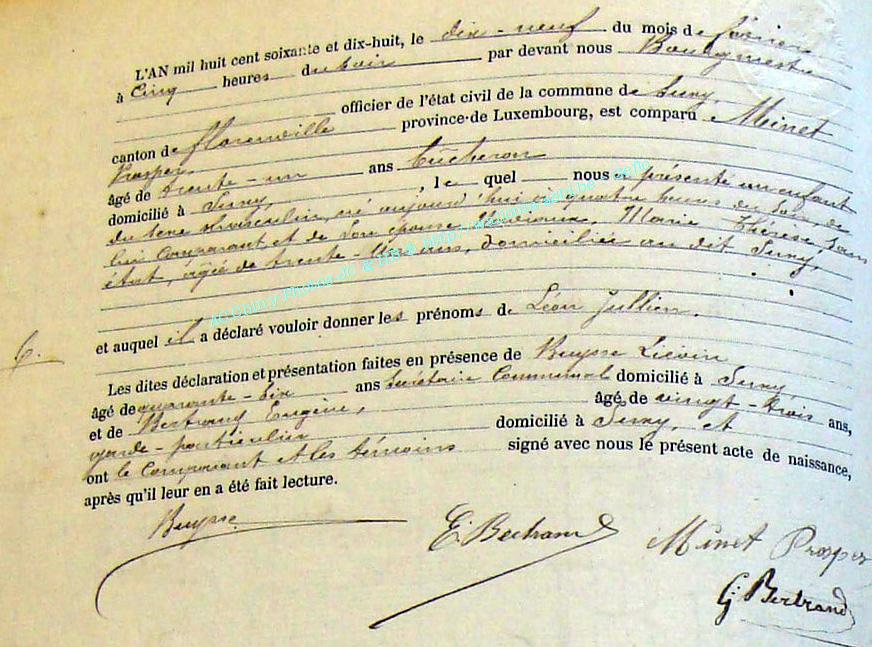 L'AN mil huit cent soixante et dix-huit, le dix-neuf du mois de février
à Cinq heures du soir par devant nous Bourgmestre
officier de l'état civil de la commune de Suxy,
canton de florenville province de Luxembourg, est comparu Minet
Prosper
âgé de trente-un ans bûcheron
domicilié à Suxy, , le quel nous a présenté un enfant
du sexe Masculin, né aujourd'hui à quatre heures du soir, de
lui Comparant et de son épouse Marie Thérèse, sans
état, âgée de trente- ans, domiciliée au dit Suxy,
et auquel il a déclaré vouloir donner les prénoms de Léon Jullien.
6.
Les dites déclaration et présentation faites en présence de Buysse Liévin
âgé de quarante-six ans Secrétaire Communal domicilié à Suxy
et de Bertrand Eugène, âgé de vingt-trois ans,
garde-particulier domicilié à Suxy, et
ont le Comparant et les témoins signé avec nous le présent acte de naissance,
après qu'il leur en a été fait lecture.
Buysse
E. Bertrand
Minet Prosper
G. Bertrand